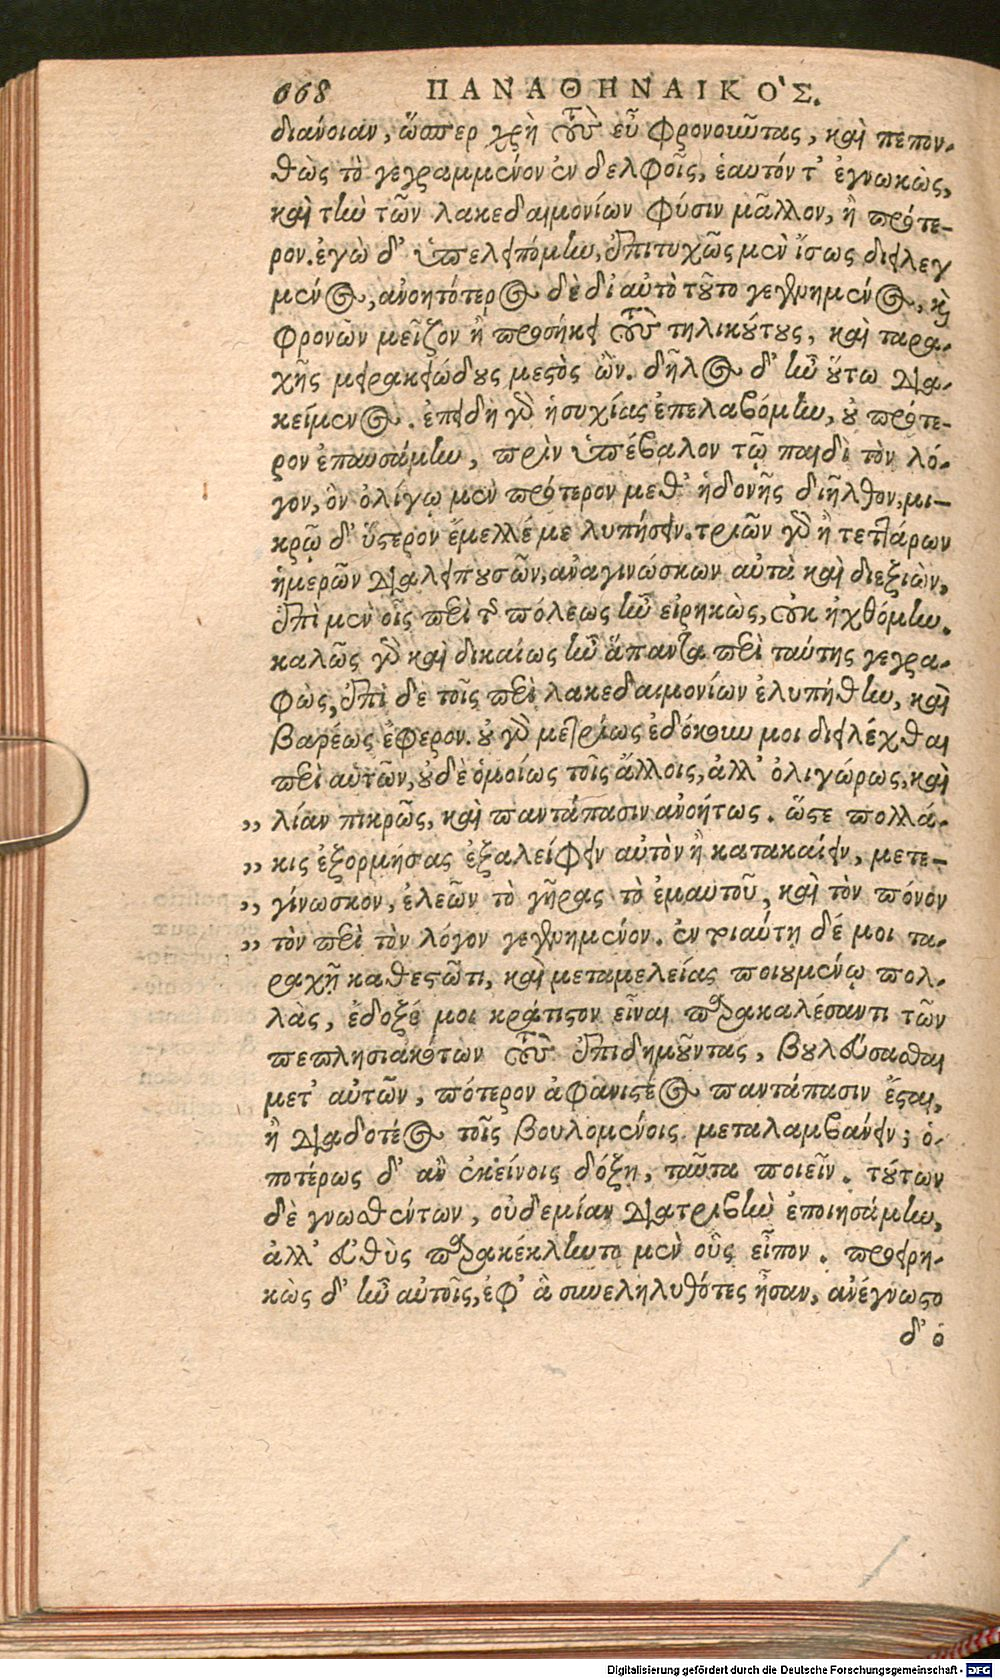 668 ΠΑΝΑΘΗΝΑΙΚΟ'Σ.
διάνοιαν, ὥσπερ χρὴ τοὺς εὖ φρονοιῦτας, καὶ πεπον-
θὼς τὸ γεγραμμένον ἐν δελφοῖς, ἑαυτόν τ' ἐγνωκὼς,
καὶ τὴν τῶν λακεδαιμονίων φύσιν μᾶλλον, ἢ πρότε-
ρον. ἐγὼ δ' ὑπελειπόμην, ἐπιτυχῶς μὲν ἴσως διειλεγ
μένος, ἀνοητότερος δὲ δι' αὐτὸ τοῦτο γεγενημένος, καὶ
φρονῶν μεῖζον ἢ προσήκει τοὺς τηλικούτους, καὶ ταρα-
χῆς μειρακιώδους μεστὸς ὤν. δῆλος δ' ἦν οὕτω δια-
κείμενος. ἐπειδὴ γὰρ ἡσυχίας ἐπελαβόμην, οὐ πρότε-
ρον ἐπαυσάμην, πρὶν ὑπέβαλον τῷ παιδὶ τὸν λό-
γον, ὃν ὀλίγῳ μὲν πρότερον μεθ' ἡδονῆς διῆλθον, μι-
κρῷ δ' ὕστερον ἔμελλέ με λυπήσειν. τριῶν γὰρ ἢ τεττάρων
ἡμερῶν διαλειπουσῶν, ἀναγινώσκων αὐτὰ καὶ διεξιὼν,
ἐπὶ μὲν οἷς περὶ τῆς πόλεως ἦν εἰρηκὼς, οὐκ ἠχθόμην.
καλῶς γὰρ καὶ δικαίως ἦν ἅπαντα περὶ ταύτης γεγρα-
φὼς, ἐπὶ δὲ τοῖς περὶ λακεδαιμονίων ἐλυπήθην, καὶ
βαρέως ἔφερον. οὐ γὰρ μετρίως ἐδόκουν μοι διειλέχθαι
περὶ αὐτῶν, οὐδὲ ὁμοίως τοῖς ἄλλοις, ἀλλ' ὀλιγώρως, καὶ
„ λίαν πικρῶς, καὶ παντάπασιν ἀνοήτως. ὥστε πολλά-
„ κις ἐξορμήσας ἐξαλείφειν αὐτὸν ἢ κατακαίειν, μετε-
„ γίνωσκον, ἐλεῶν τὸ γῆρας τὸ ἐμαυτοῦ, καὶ τὸν πόνον
„ τὸν περὶ τὸν λόγον γεγενημένον. ἐν τοιαύτῃ δέ μοι τα-
ραχῇ καθεστῶτι, καὶ μεταμελείας ποιουμένῳ πολ-
λὰς, ἔδοξέ μοι κράτιστον εἶναι παρακαλέσαντι τῶν
πεπλησιακότων τοὺς ἐπιδημοῦντας, βουλεύσασθαι
μετ' αὐτῶν, πότερον ἀφανιστέος παντάπασιν ἔσται,
ἢ διαδοτέος τοῖς βουλομένοις μεταλαμβάνειν; ὁ-
ποτέρως δ' ἂν ἐκείνοις δόξῃ, ταῦτα ποιεῖν. τούτων
δὲ γνωσθέντων, οὐδεμίαν διατριβὴν ἐποιησάμην,
ἀλλ' εὐθὺς παρακέκληντο μὲν οὓς εἶπον. προειρη-
κὼς δ' ἦν αὐτοῖς, ἐφ' ἃ συνεληλυθότες ἦσαν, ἀνέγνωστο
δ' ὁ
Digitalisierung gefördert durch die Deutsche Forschungsgemeinschaft - DFG